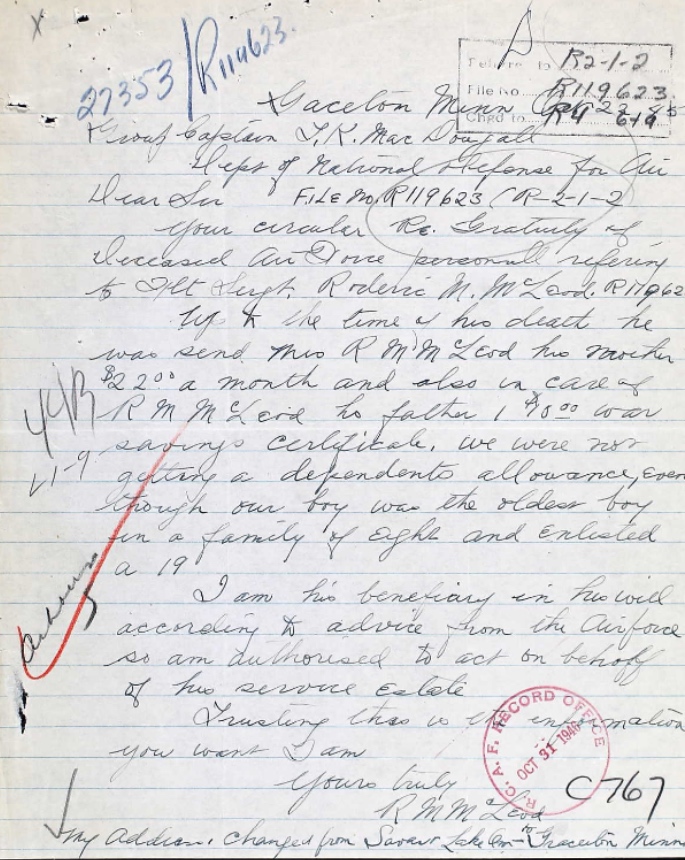 X
27353/R119623.
Refer to R2-1-2
File No. R119623.
Chgd to R4
Graceton Minn Oct 22 45
Group Captain T.K. Mac Dougall
Dept of National Defense for Air
Dear Sir FILE No. R119623 (R-2-1-2
Your circular Re. Gratuity of
Deceased Air Force personell refering
to Flt Sergt. Roderic M. McLeod. R11962
Up to the time of his death he
was send Mrs R M McLeod his mother
$22.00 a month and also in care of
R M McLeod his father 1 $10.00 war
savings certificate, we were not
getting a dependents allowance, even
though our boy was the oldest boy
in a family of eight and enlisted
a 19
I am his benefiary in his will
according to advice from the Airforce
so am authorised to act on behoff
of his service estate
Trusting this is the information
you want I am
Yours truly
R M McLeod
R.C.A.F. RECORD OFFICE
OCT 31 1945
C767
My Address changed from Savant Lake Ont to Graceton Minn